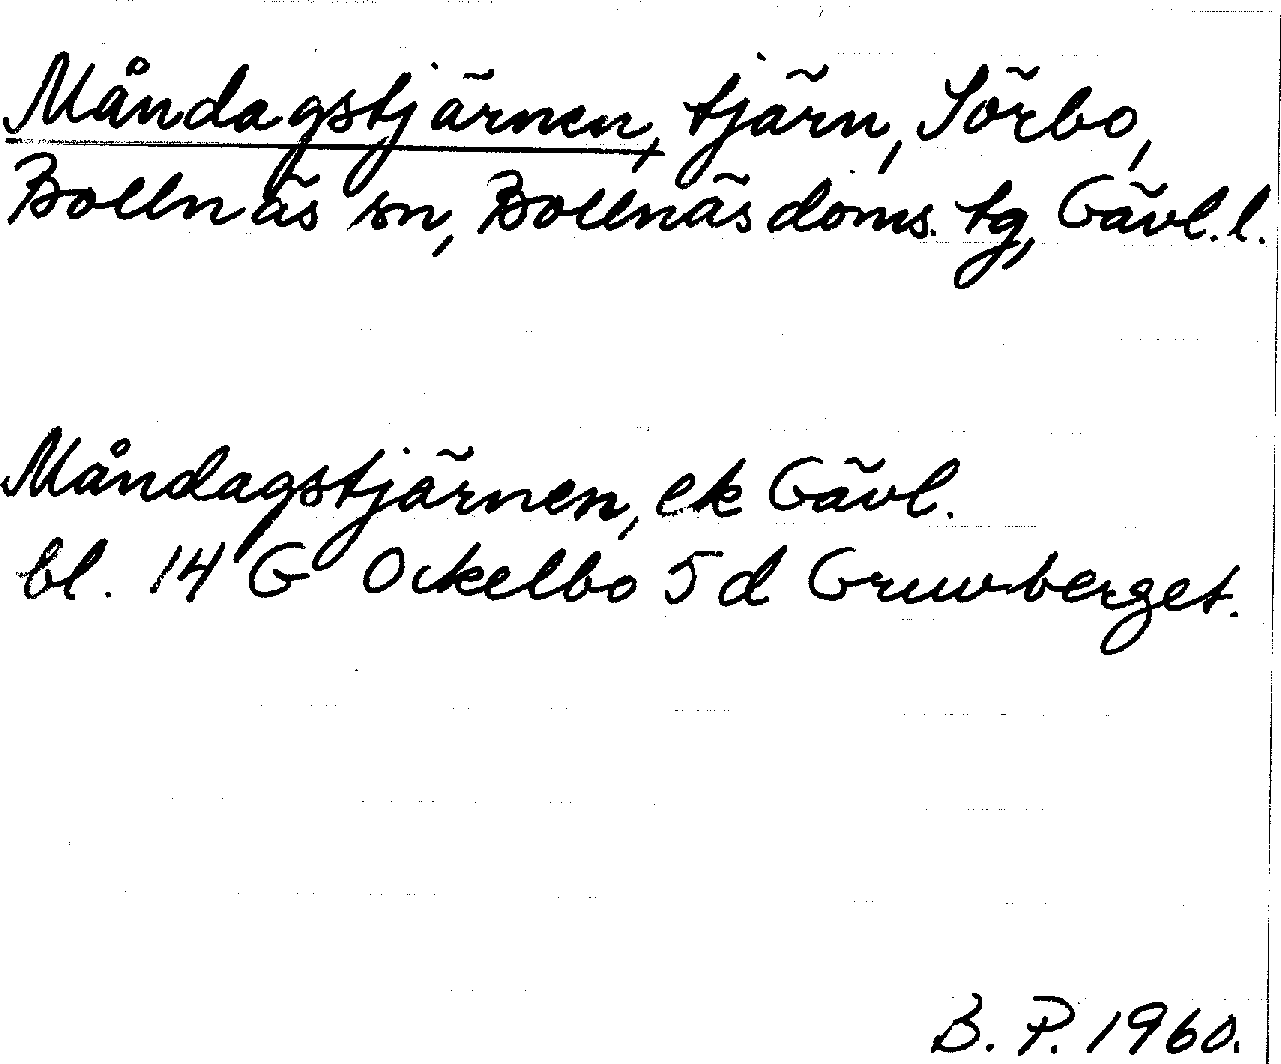 Måndagstjärnen, tjärn, Sörbo,
Bollnäs sn, Bollnäs doms. tg, Gävl. l.
Måndagstjärnen, ek Gävl.
bl. 14 G Ockelbo 5 d Gruvberget.
B. P. 1960.